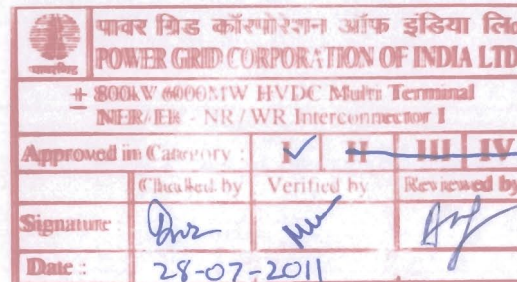 पावर ग्रिड कॉरपोरेशन ऑफ इंडिया लि
POWER GRID CORPORATION OF INDIA LTD
पावरग्रिड
± 800kW 6000MW HVDC Multi Terminal
NER/ER - NR/WR Interconnector I
Approved in Category : I ✓ II III IV
Checked by Verified by Reviewed by
Signature :
Date : 28-07-2011